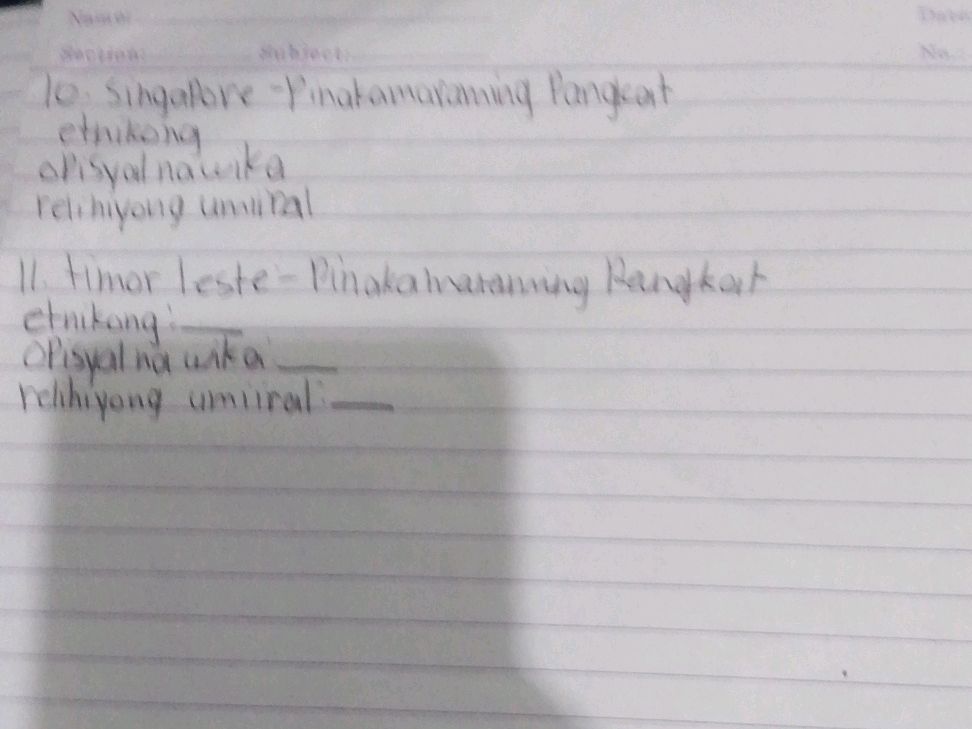 Name:
Date
Section: Subject:
No.
10. Singapore - Pinakamaraming Pangkat
etnikong
opisyal na wika
relihiyong umiiral
11. timor leste - Pinakamaraming Pangkat
etnikong: __
opisyal na wika: __
relihiyong umiiral: __